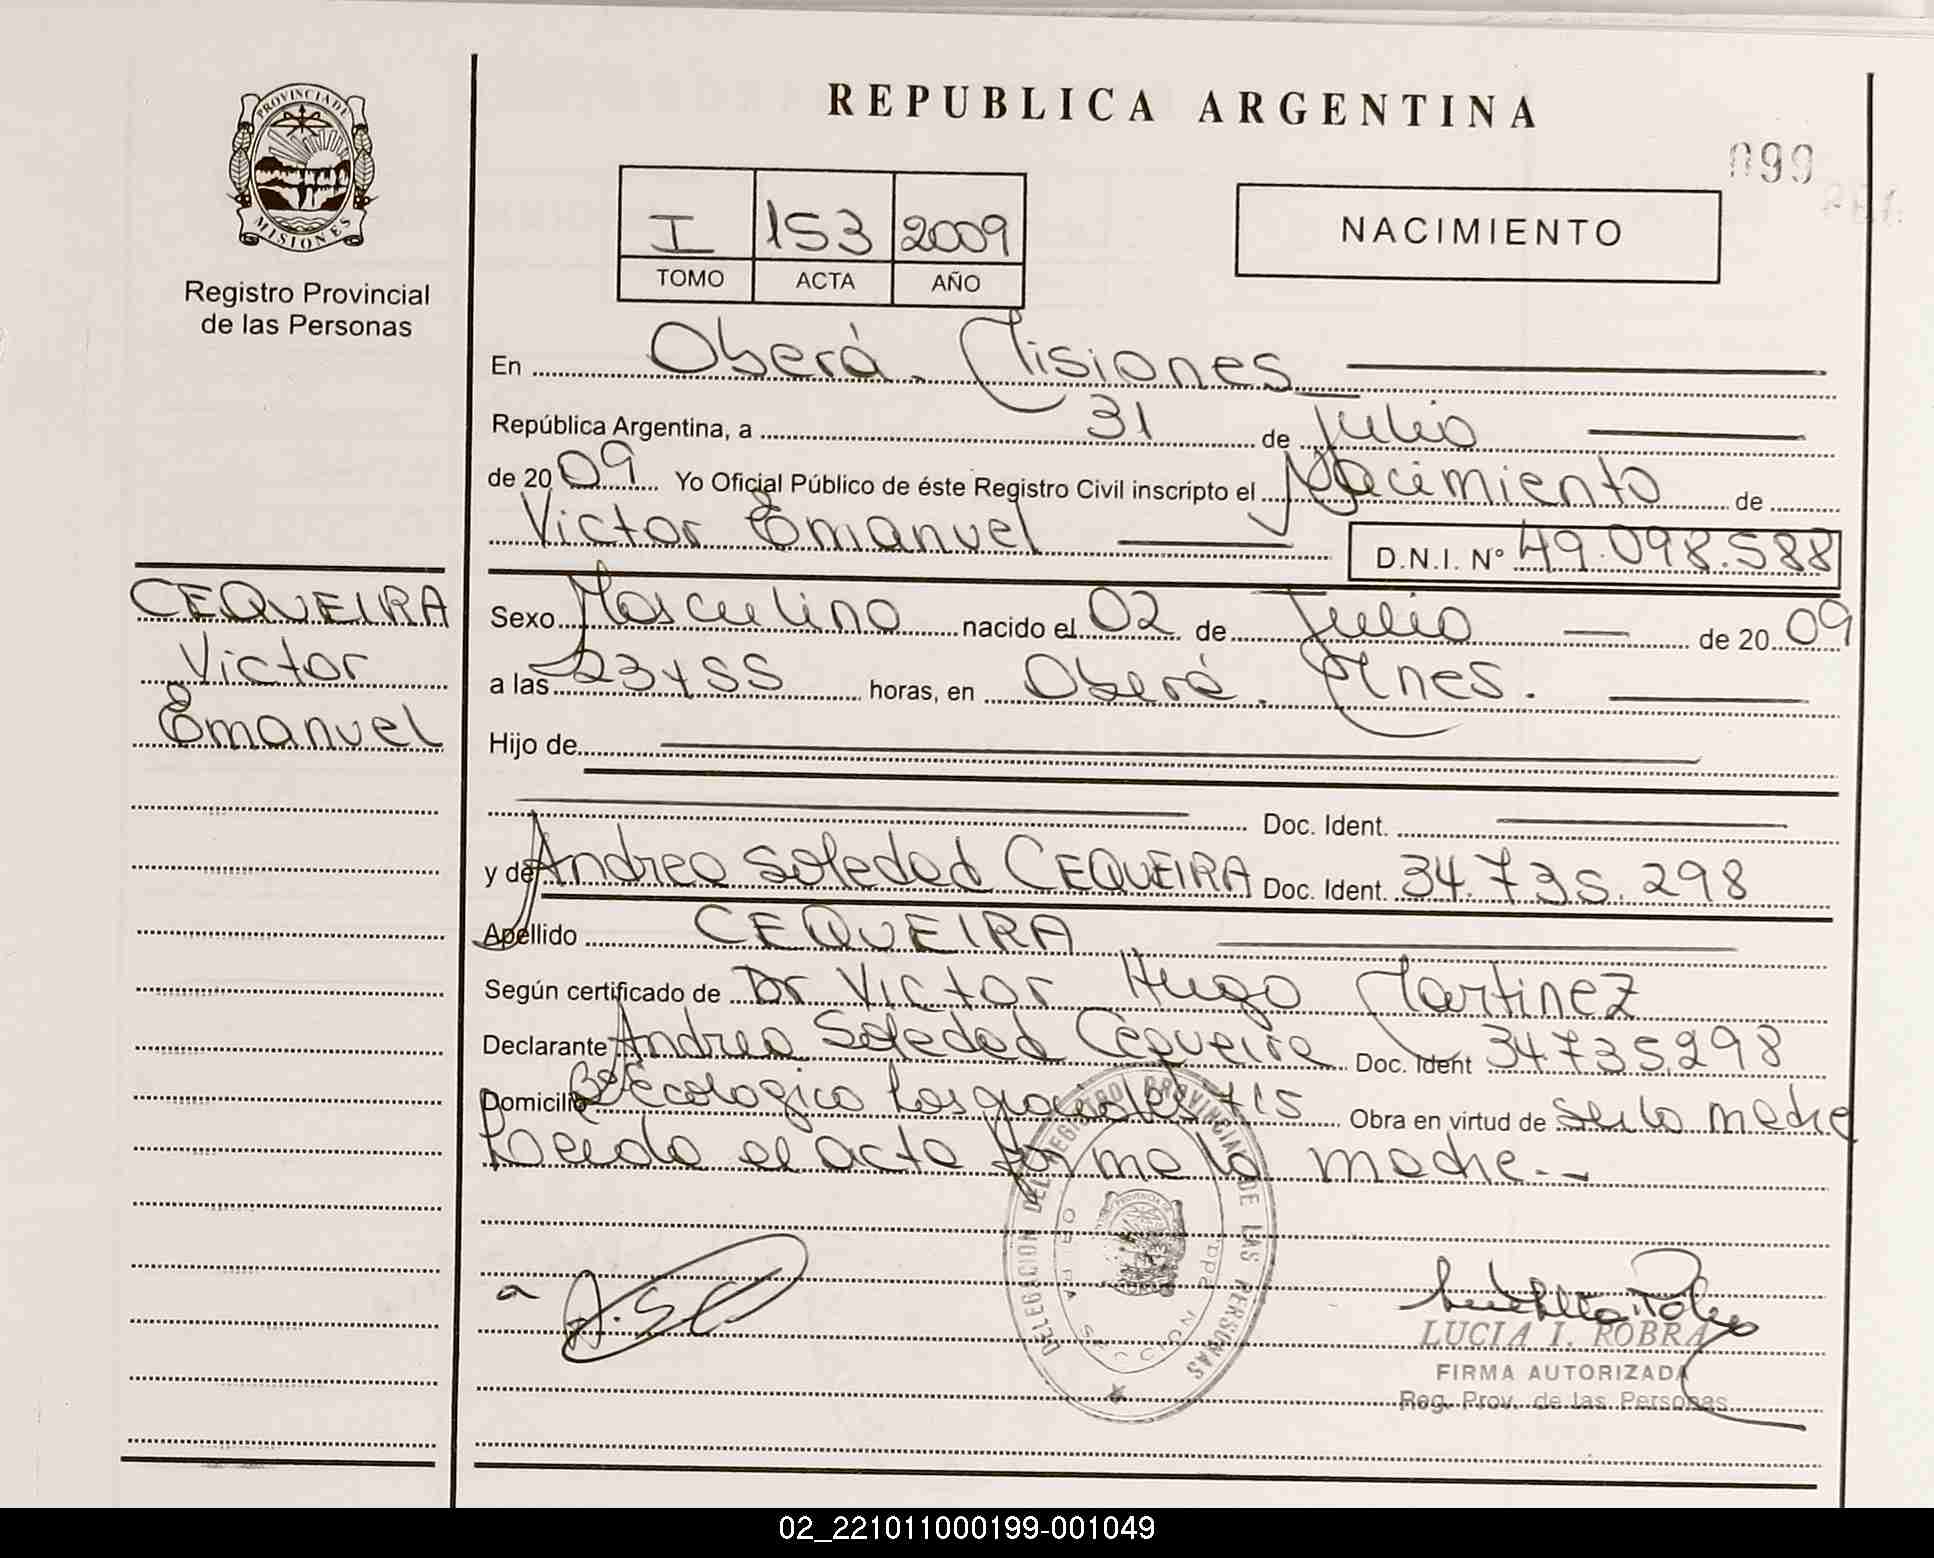 PROVINCIA DE
MISIONES
Registro Provincial
de las Personas
REPUBLICA ARGENTINA
099
I 153 2009
TOMO ACTA AÑO
NACIMIENTO
En Oberá. Misiones
República Argentina, a 31 de Julio
de 2009 Yo Oficial Público de éste Registro Civil inscripto el Nacimiento de
Victor Emanuel D.N.I. N° 49.098.588
CEQUEIRA
Victor
Emanuel
Sexo Masculino nacido el 02 de Julio de 2009
a las 23y55 horas, en Oberá. Mnes.
Hijo de
Doc. Ident.
y de Andrea Soledad CEQUEIRA Doc. Ident. 34.735.298
Apellido CEQUEIRA
Según certificado de Dr Victor Hugo Martinez
Declarante Andrea Soledad Cequeira Doc. Ident 34.735.298
Domicilio Bº Ecologico Las 715 Obra en virtud de ser la madre
Leida el acta firma la madre.-
DELEGACION DEL REGISTRO PROVINCIAL DE LAS PERSONAS
LUCIA I. ROBRA
FIRMA AUTORIZADA
Reg. Prov. de las Personas
02_221011000199-001049